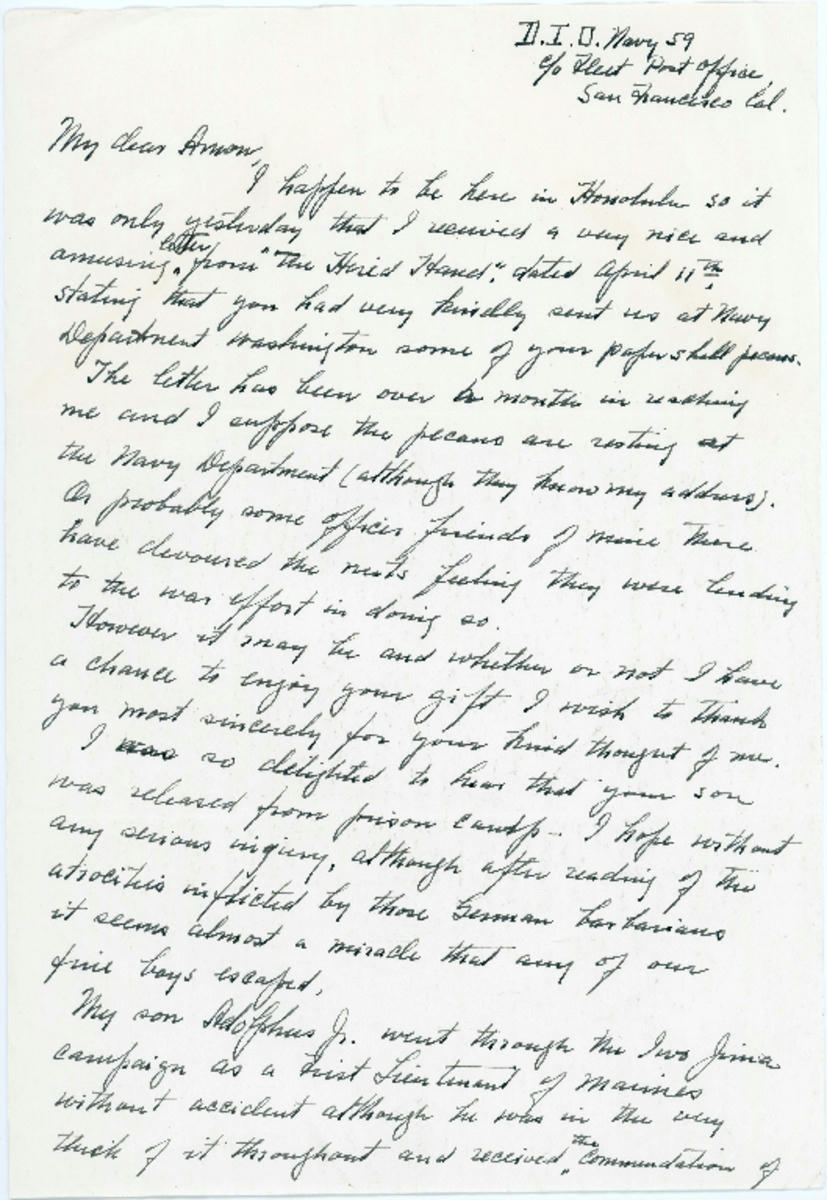 D.I.O. Navy 59
c/o Fleet Post Office,
San Francisco Cal.
My dear Amon,
I happen to be here in Honolulu so it
was only yesterday that I received a very nice and
amusing letter from "The Hired Hand", dated April 11th,
stating that you had very kindly sent us at Navy
Department Washington some of your papershell pecans.
The letter has been over a month in reaching
me and I suppose the pecans are resting at
the Navy Department (although they know my address).
Or probably some officer friends of mine there
have devoured the nuts feeling they were lending
to the war effort in doing so.
However it may be and whether or not I have
a chance to enjoy your gift I wish to thank
you most sincerely for your kind thought of me.
I was so delighted to hear that your son
was released from prison camp - I hope without
any serious injury, although after reading of the
atrocities inflicted by those German barbarians
it seems almost a miracle that any of our
fine boys escaped.
My son Adolphus Jr. went through the Iwo Jima
campaign as a First Lieutenant of Marines
without accident although he was in the very
thick of it throughout and received the commendation of